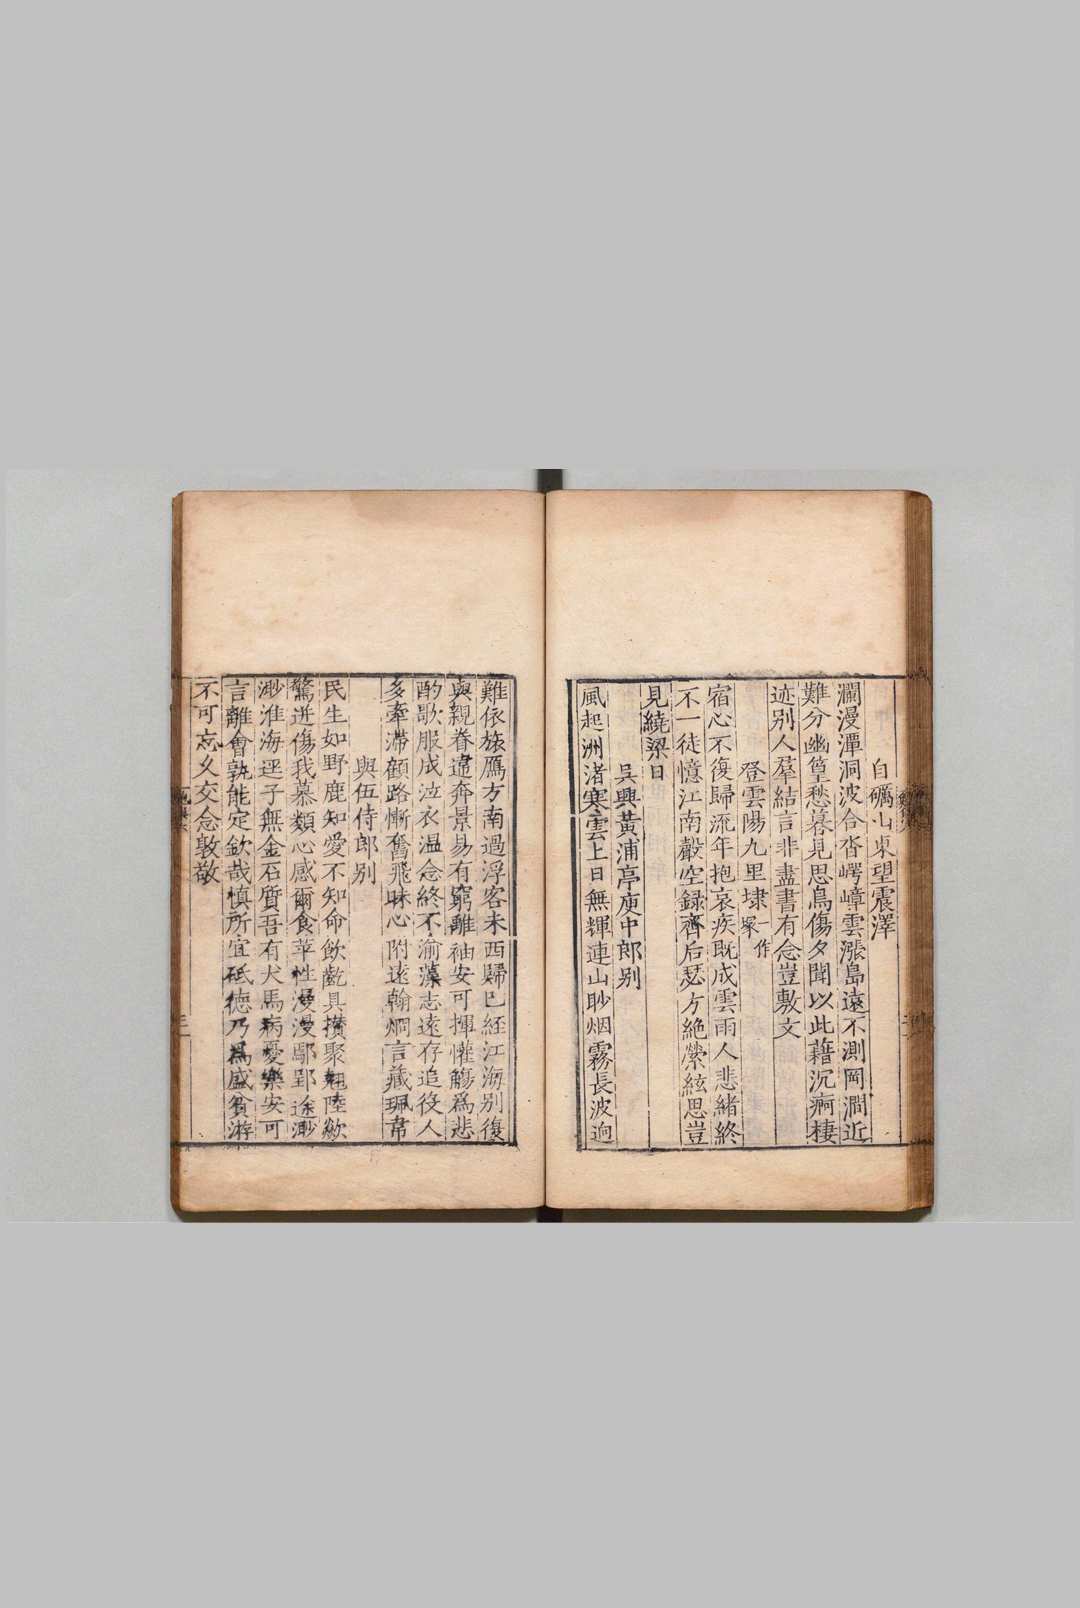 自礪山東望震澤
瀾漫潭洞波合沓崿嶂雲漲島遠不測岡澗近
難分幽篁愁暮見思鳥傷夕聞以此藉沉痾棲
迹别人羣結言非盡書有念豈敷文
登雲陽九里埭一作冢
宿心不復歸流年抱衰疾既成雲雨人悲緒終
不一徒憶江南聲空録齊后瑟方絶縈絃思豈
見繞梁日
吳興黄浦亭庾中郎别
風起洲渚寒雲上日無輝連山眇烟霧長波迥
難依旅鴈方南過浮客未西歸已經江海别復
與親眷違奔景易有窮離袖安可揮懽觴爲悲
酌歌服成泣衣温念終不渝藻志遠存追役人
多牽滯顧路慚奮飛昧心附遠翰烱言藏珮韋
與伍侍郎别
民生如野鹿知愛不知命飲齕具攢聚翹陸歘
驚迸傷我慕類心感爾食苹性漫漫鄢郢途渺
渺淮海逕子無金石質吾有犬馬病憂樂安可
言離會孰能定欽哉慎所宜砥德乃爲盛貧游
不可忘久交念敦敬
三